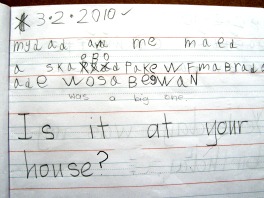 3·2·2010
my dad and me maed
a skabod pake w F ma Brad
ade wosa Begwan
was a big one.
Is it at your
house?